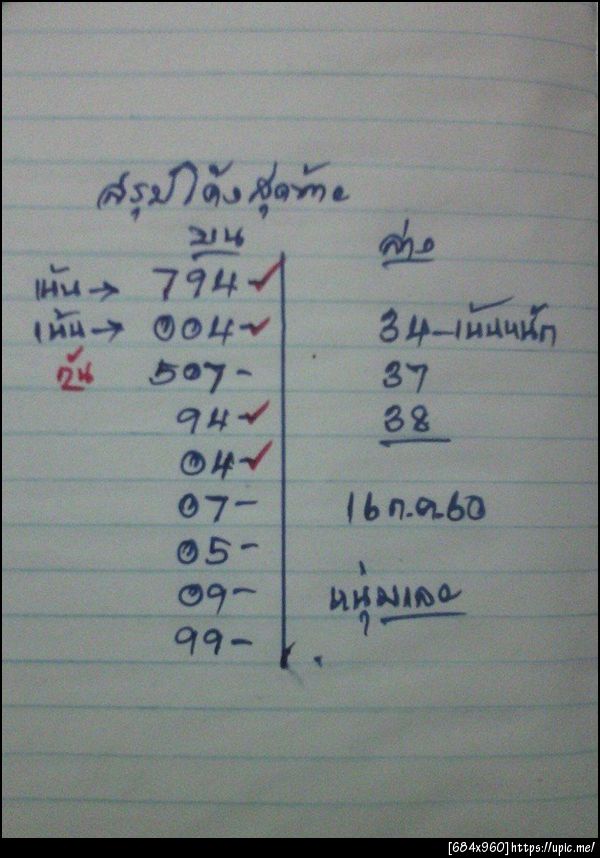 สรุปโค้งสุดท้าย
บน
ล่าง
เน้น→ 794-✓
เน้น→ 004-✓ 34-เน้นหนัก
กัน 507- 37
94-✓ 38
04-✓
07- 16 ก.ค.60
05-
09- หนุ่มเลย
99-
[684x960]https://upic.me/